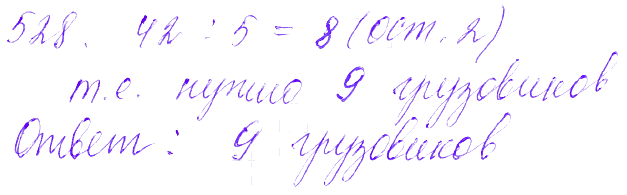 528. 42 : 5 = 8 (ост. 2)
т.е. нужно 9 грузовиков
Ответ: 9 грузовиков